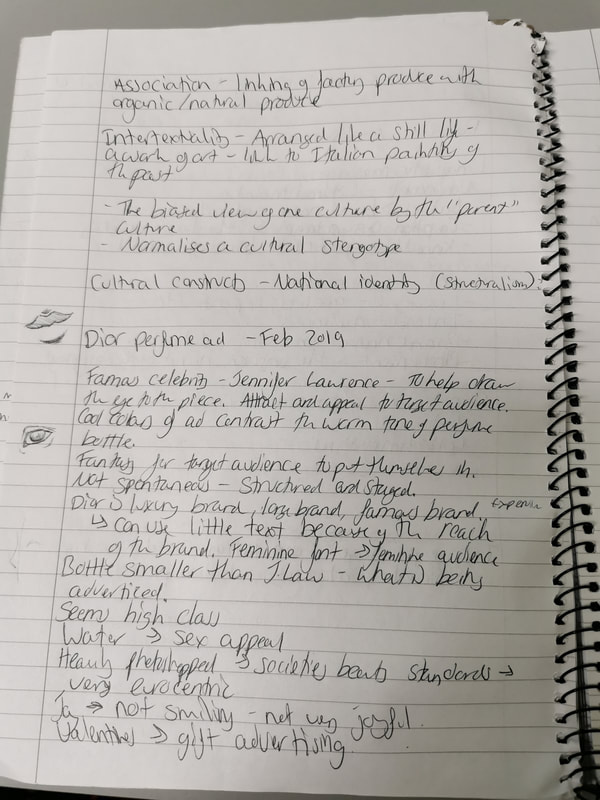 Association - linking of factory produce with
organic/natural produce
Intertextuality - Arranged like a still life -
a work of art - link to Italian paintings of
the past
- The biased view of one culture by the "parent"
culture
- Normalises a cultural stereotype
Cultural constructs - National identity (Structuralism).
Dior perfume ad - Feb 2019
Famous celebrity - Jennifer Lawrence - To help draw
the eye to the piece. Attract and appeal to target audience.
Cool colours of ad contrast the warm tone of perfume
bottle.
Fantasy for target audience to put themselves in.
Not spontaneous - Structured and staged.
Dior is luxury brand, large brand, famous brand,
↳ can use little text because of the reach
of the brand. Feminine font → feminine audience
Bottle smaller than J.Law - what is being
advertised.
Seems high class
Water → sex appeal
Heavily photoshopped → societies beauty standards →
very eurocentric
Joy → not smiling - not very joyful.
Valentines → gift advertising.